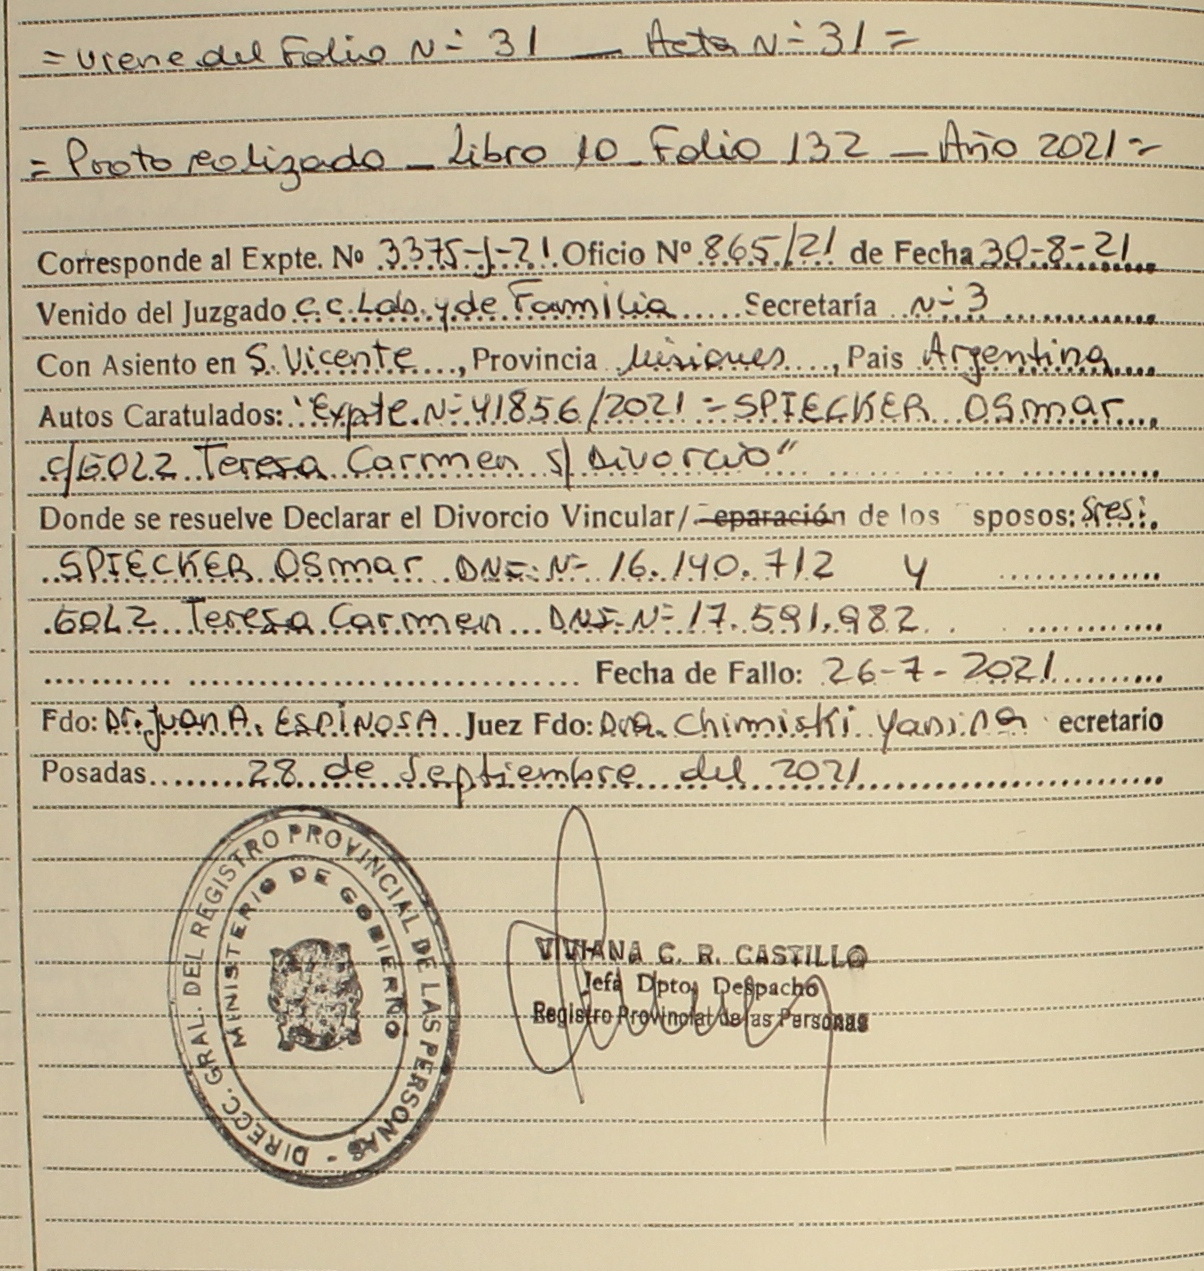 = viene del Folio N- 31 _ Acta N- 31 =
= Protocolizado _ Libro 10 _ Folio 132 _ Año 2021 =
Corresponde al Expte. Nº 3375-J-21 Oficio Nº 865/21 de Fecha 30-8-21
Venido del Juzgado C.C. Lab. y de Familia Secretaría N- 3
Con Asiento en S. Vicente, Provincia Misiones, Pais Argentina
Autos Caratulados: "Expte. N- 41856/2021 = SPIECKER Osmar
c/GOLZ Teresa Carmen s/ Divorcio"
Donde se resuelve Declarar el Divorcio Vincular/ eparación de los sposos: Sres:
SPIECKER Osmar DNI. N- 16.140.712 y
GOLZ Teresa Carmen DNI. N- 17.591.982
Fecha de Fallo: 26-7-2021
Fdo: Dr. Juan A. ESPINOSA Juez Fdo: Dra. Chimiski Yanina ecretario
Posadas 28 de Septiembre del 2021
DIRECC. GRAL. DEL REGISTRO PROVINCIAL DE LAS PERSONAS -
MINISTERIO DE GOBIERNO
VIVIANA C. R. CASTILLO
Jefa Dpto. Despacho
Registro Provincial de las Personas